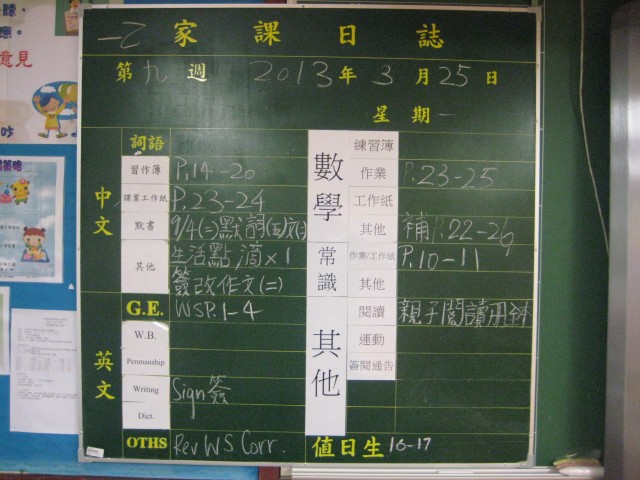 一乙 家課日誌
第九週 2013年3月25日
星期一
中文
詞語
習作簿 P.14-20
課業工作紙 P.23-24
默書 9/4(二)默詞(五)文(三)
其他 生活點滴x1
簽改作文(二)
英文
G.E. WSP.1-4
W.B.
Penmanship
Writing Sign簽
Dict.
OTHS Rev WS Corr.
數學
練習簿
作業 P.23-25
工作紙
其他 補P.22-26
常識
作業/工作紙 P.10-11
其他
其他
閱讀 親子閱讀冊
運動
簽閱通告
值日生 16-17
意見